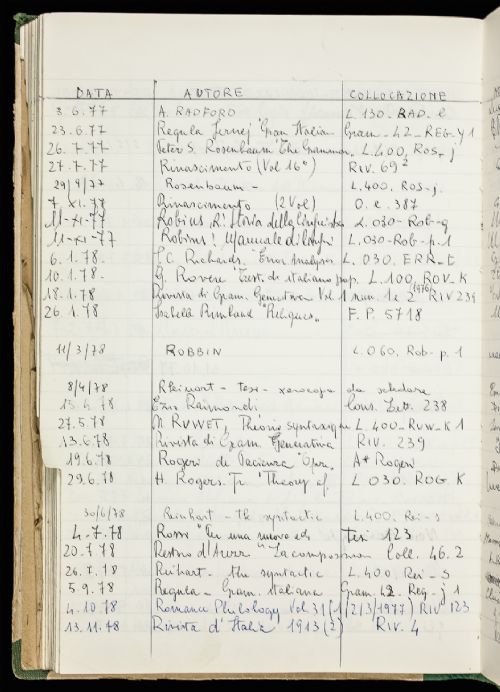 DATA AUTORE COLLOCAZIONE
3.6.77 A. RADFORD L. 130. RAD. e
23.6.77 Regula Jernej "Gram Italia Gram. 42 REG-y1
26.7.77 Peter S. Rosenbaum "The Grammar L.400, ROS-j
27.7.77 Rinascimento (Vol 16°) RIV. 69²
29/9/77 Rosenbaum - L.400. ROS-j.
7.XI.77 Rinascimento (2 Vol) O. e. 387
11-XI-77 Robins, R. Storia della linguistica L. 030-Rob-q
11-XI-77 Robins, Manuale di L.030-Rob-p.1
6.1.78. J.C. Richards. Error Analysis L. 030, ERR-t
10.1.78. G. Rovere Test. de italiano pop. L. 100, ROV-K
18.1.78 Rivista di Gram. Generativa Vol. 1 num. 1 e 2 (1976) RIV 239
26.1.78 "Reliques" F.P. 5718
11/3/78 ROBBIN L.060. Rob-p.1
8/4/78 Reinhart - tesi - xerocopia da schedare
13.4.78 Ezio Raimondi Cons. Lett. 238
27.5.78 N RUWET, Theorie syntaxique L. 400-RUW-K1
13.6.78 Rivista di Gram. Generativa RIV. 239
19.6.78 Rogeri de Pacienza "Opere A* Rogeri
29.6.78 H. Rogers Jr. "Theory of L 030. ROG. K
30/6/78 Reinhart - the syntactic L.400. Rei-s
4.7.78 Rossi "Per una nuova ed tesi 123
20.7.78 Restoro d'Arezzo "La composizion Coll. 46.2
26.7.78 Reihart - the syntactic L.400. Rei-S
5.9.78 Regula - Gram. Italiana Gram. 42. Reg-j1
4.10.78 Romance Philology Vol 31 (1/2/3/1977) RIV 123
13.11.78 Rivista d'Italia 1913 (2) RIV. 4